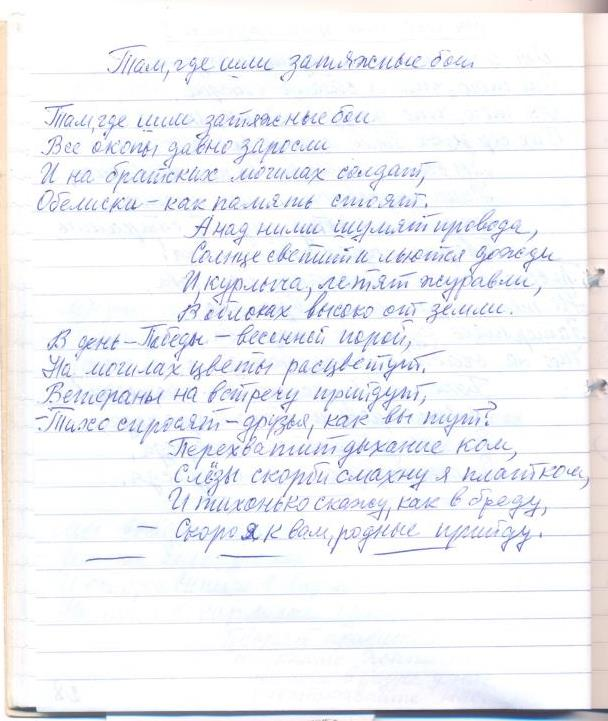 Там, где шли затяжные бои
Там, где шли затяжные бои
Все окопы давно заросли
И на братских могилах солдат,
Обелиски - как память стоят.
А над ними шумят провода,
Солнце светит и льются дожди
И курлыча, летят журавли,
В облоках высоко от земли.
В день - Победы - весенней порой,
На могилах цветы расцветут.
Ветераны на встречу прийдут,
- Тихо спросят - друзья, как вы тут?
Перехватит дыхание ком,
Слёзы скорби смахну я платком,
И тихонько скажу, как в бреду,
- Скоро я к вам, родные прийду.